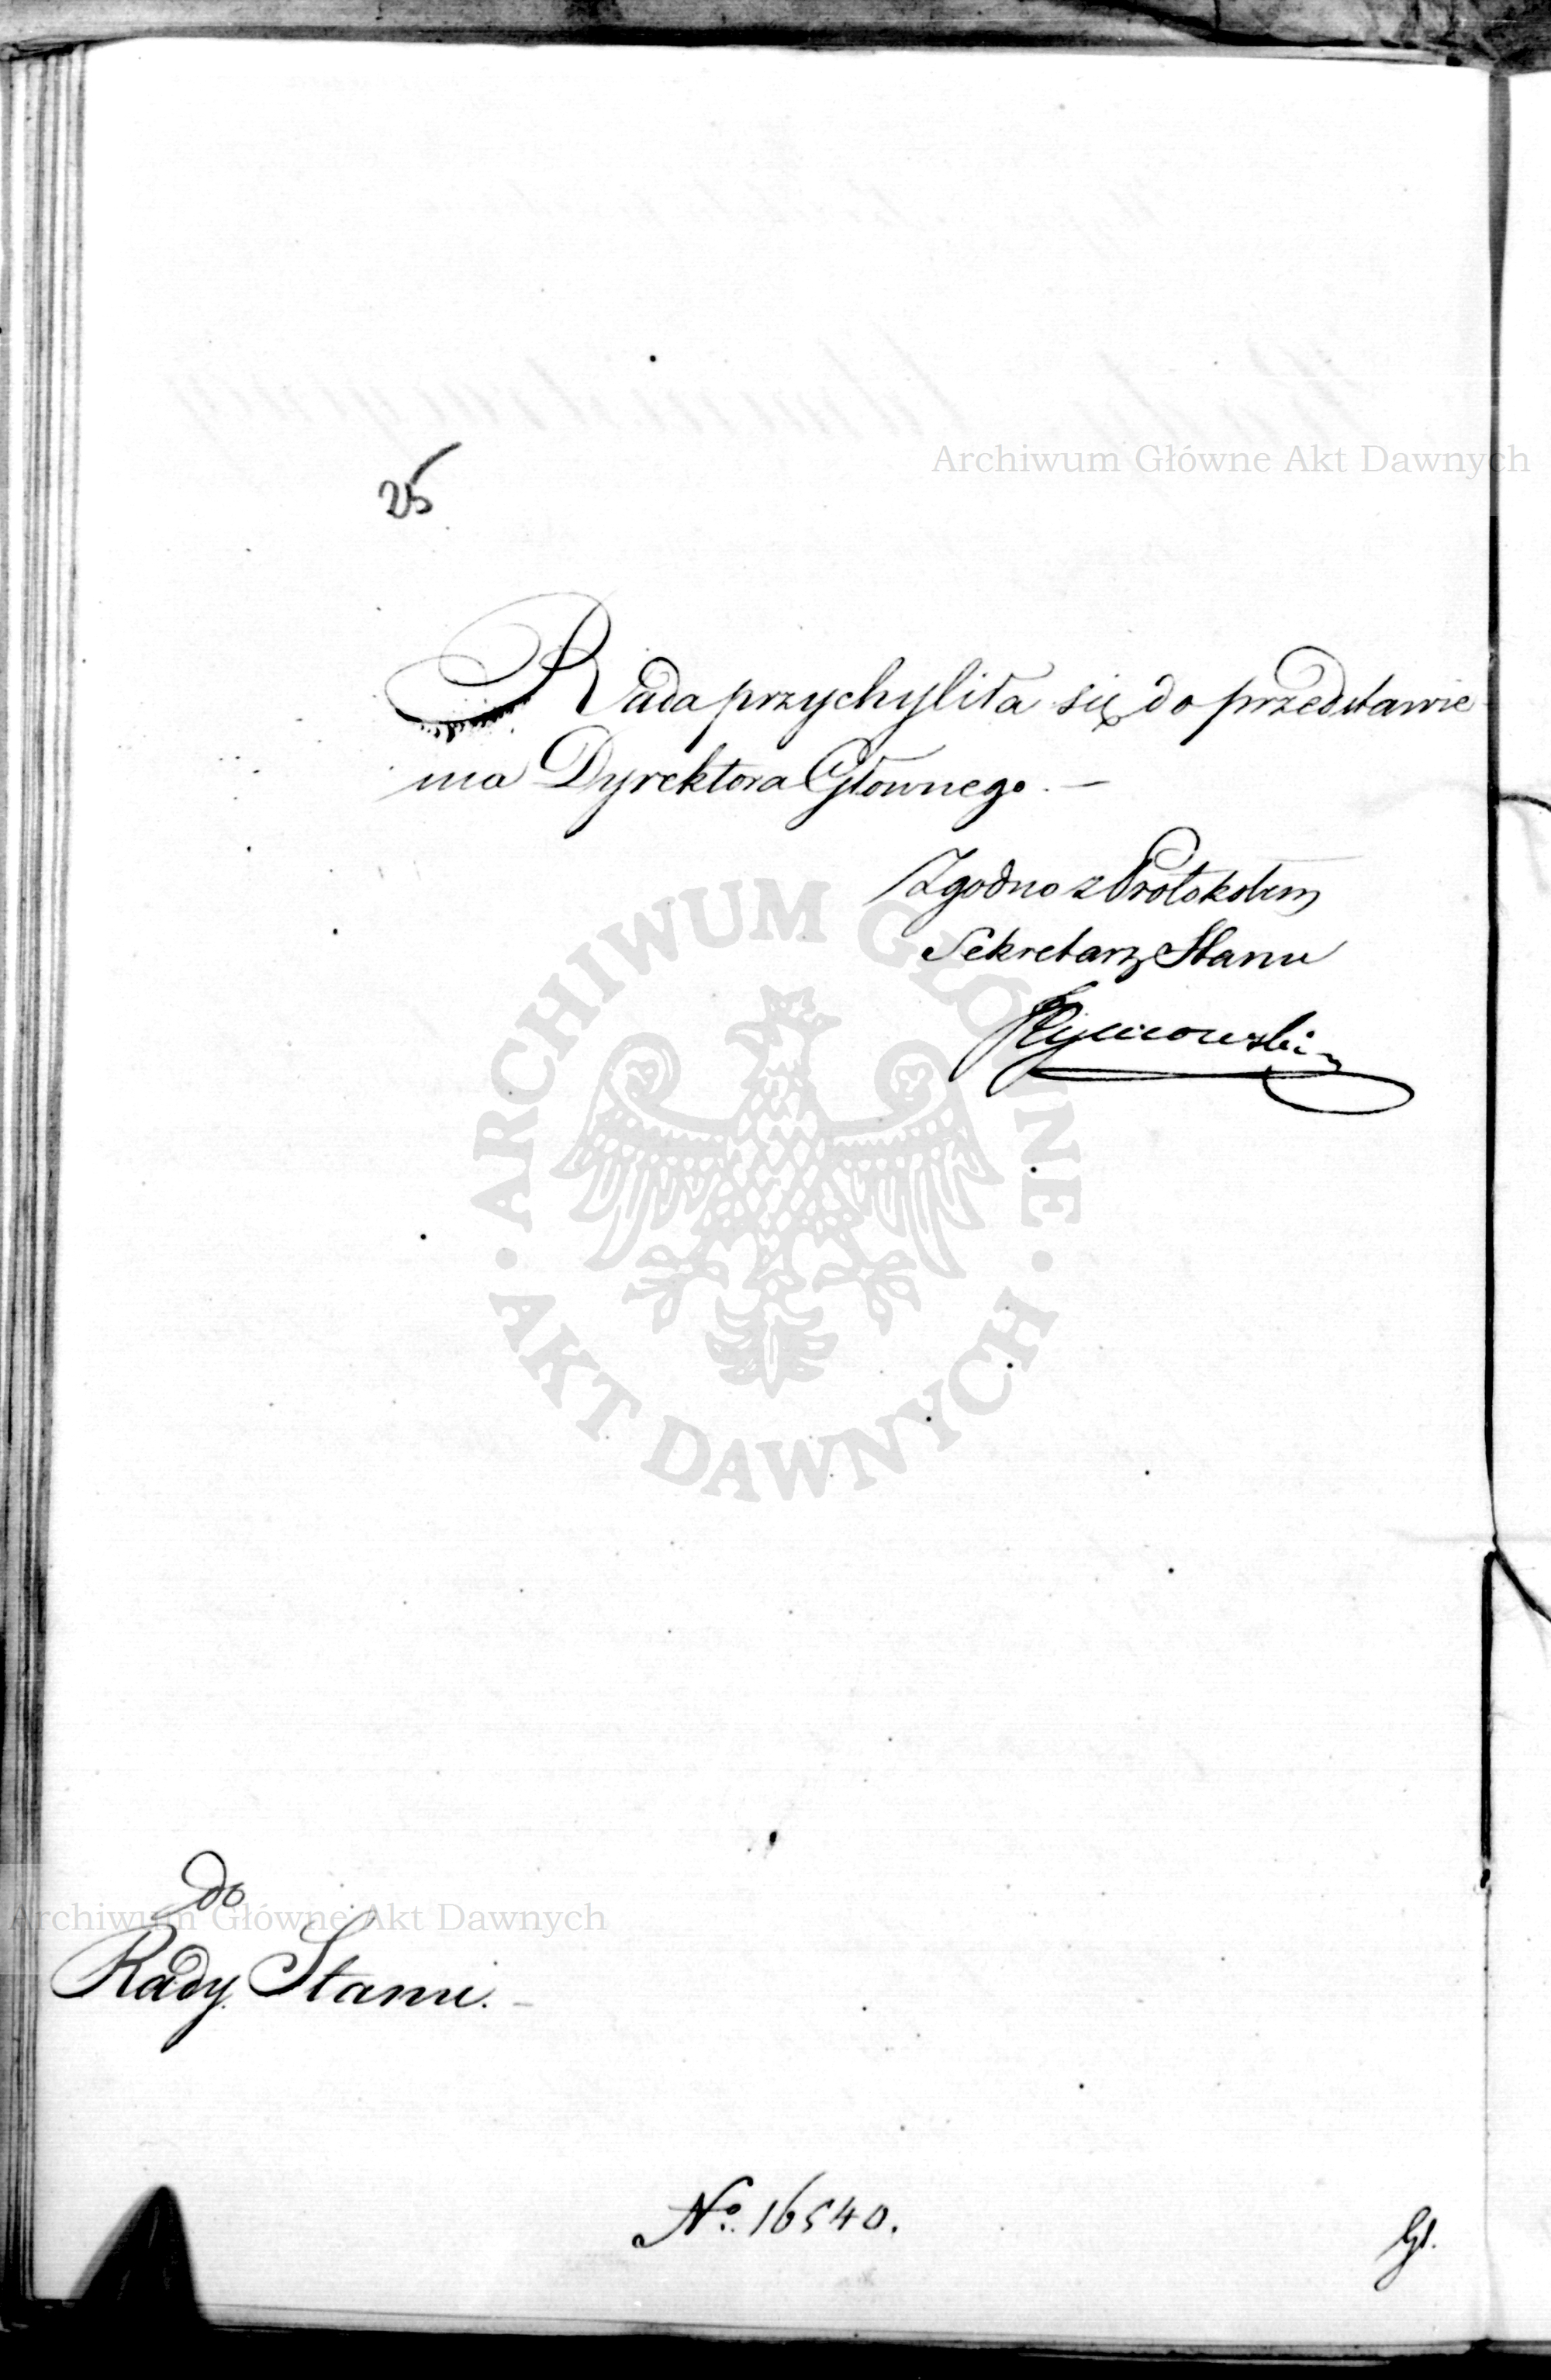 Archiwum Główne Akt Dawnych
25
Rada przychyliła się do przedstawie
nia Dyrektora Głownego. —
Zgodno z Protokołem
Sekretarz Stanu
Tymowski
ARCHIWUM GŁÓWNE
AKT DAWNYCH
do
Archiwum Główne Akt Dawnych
Rady Stanu. —
No. 16540.